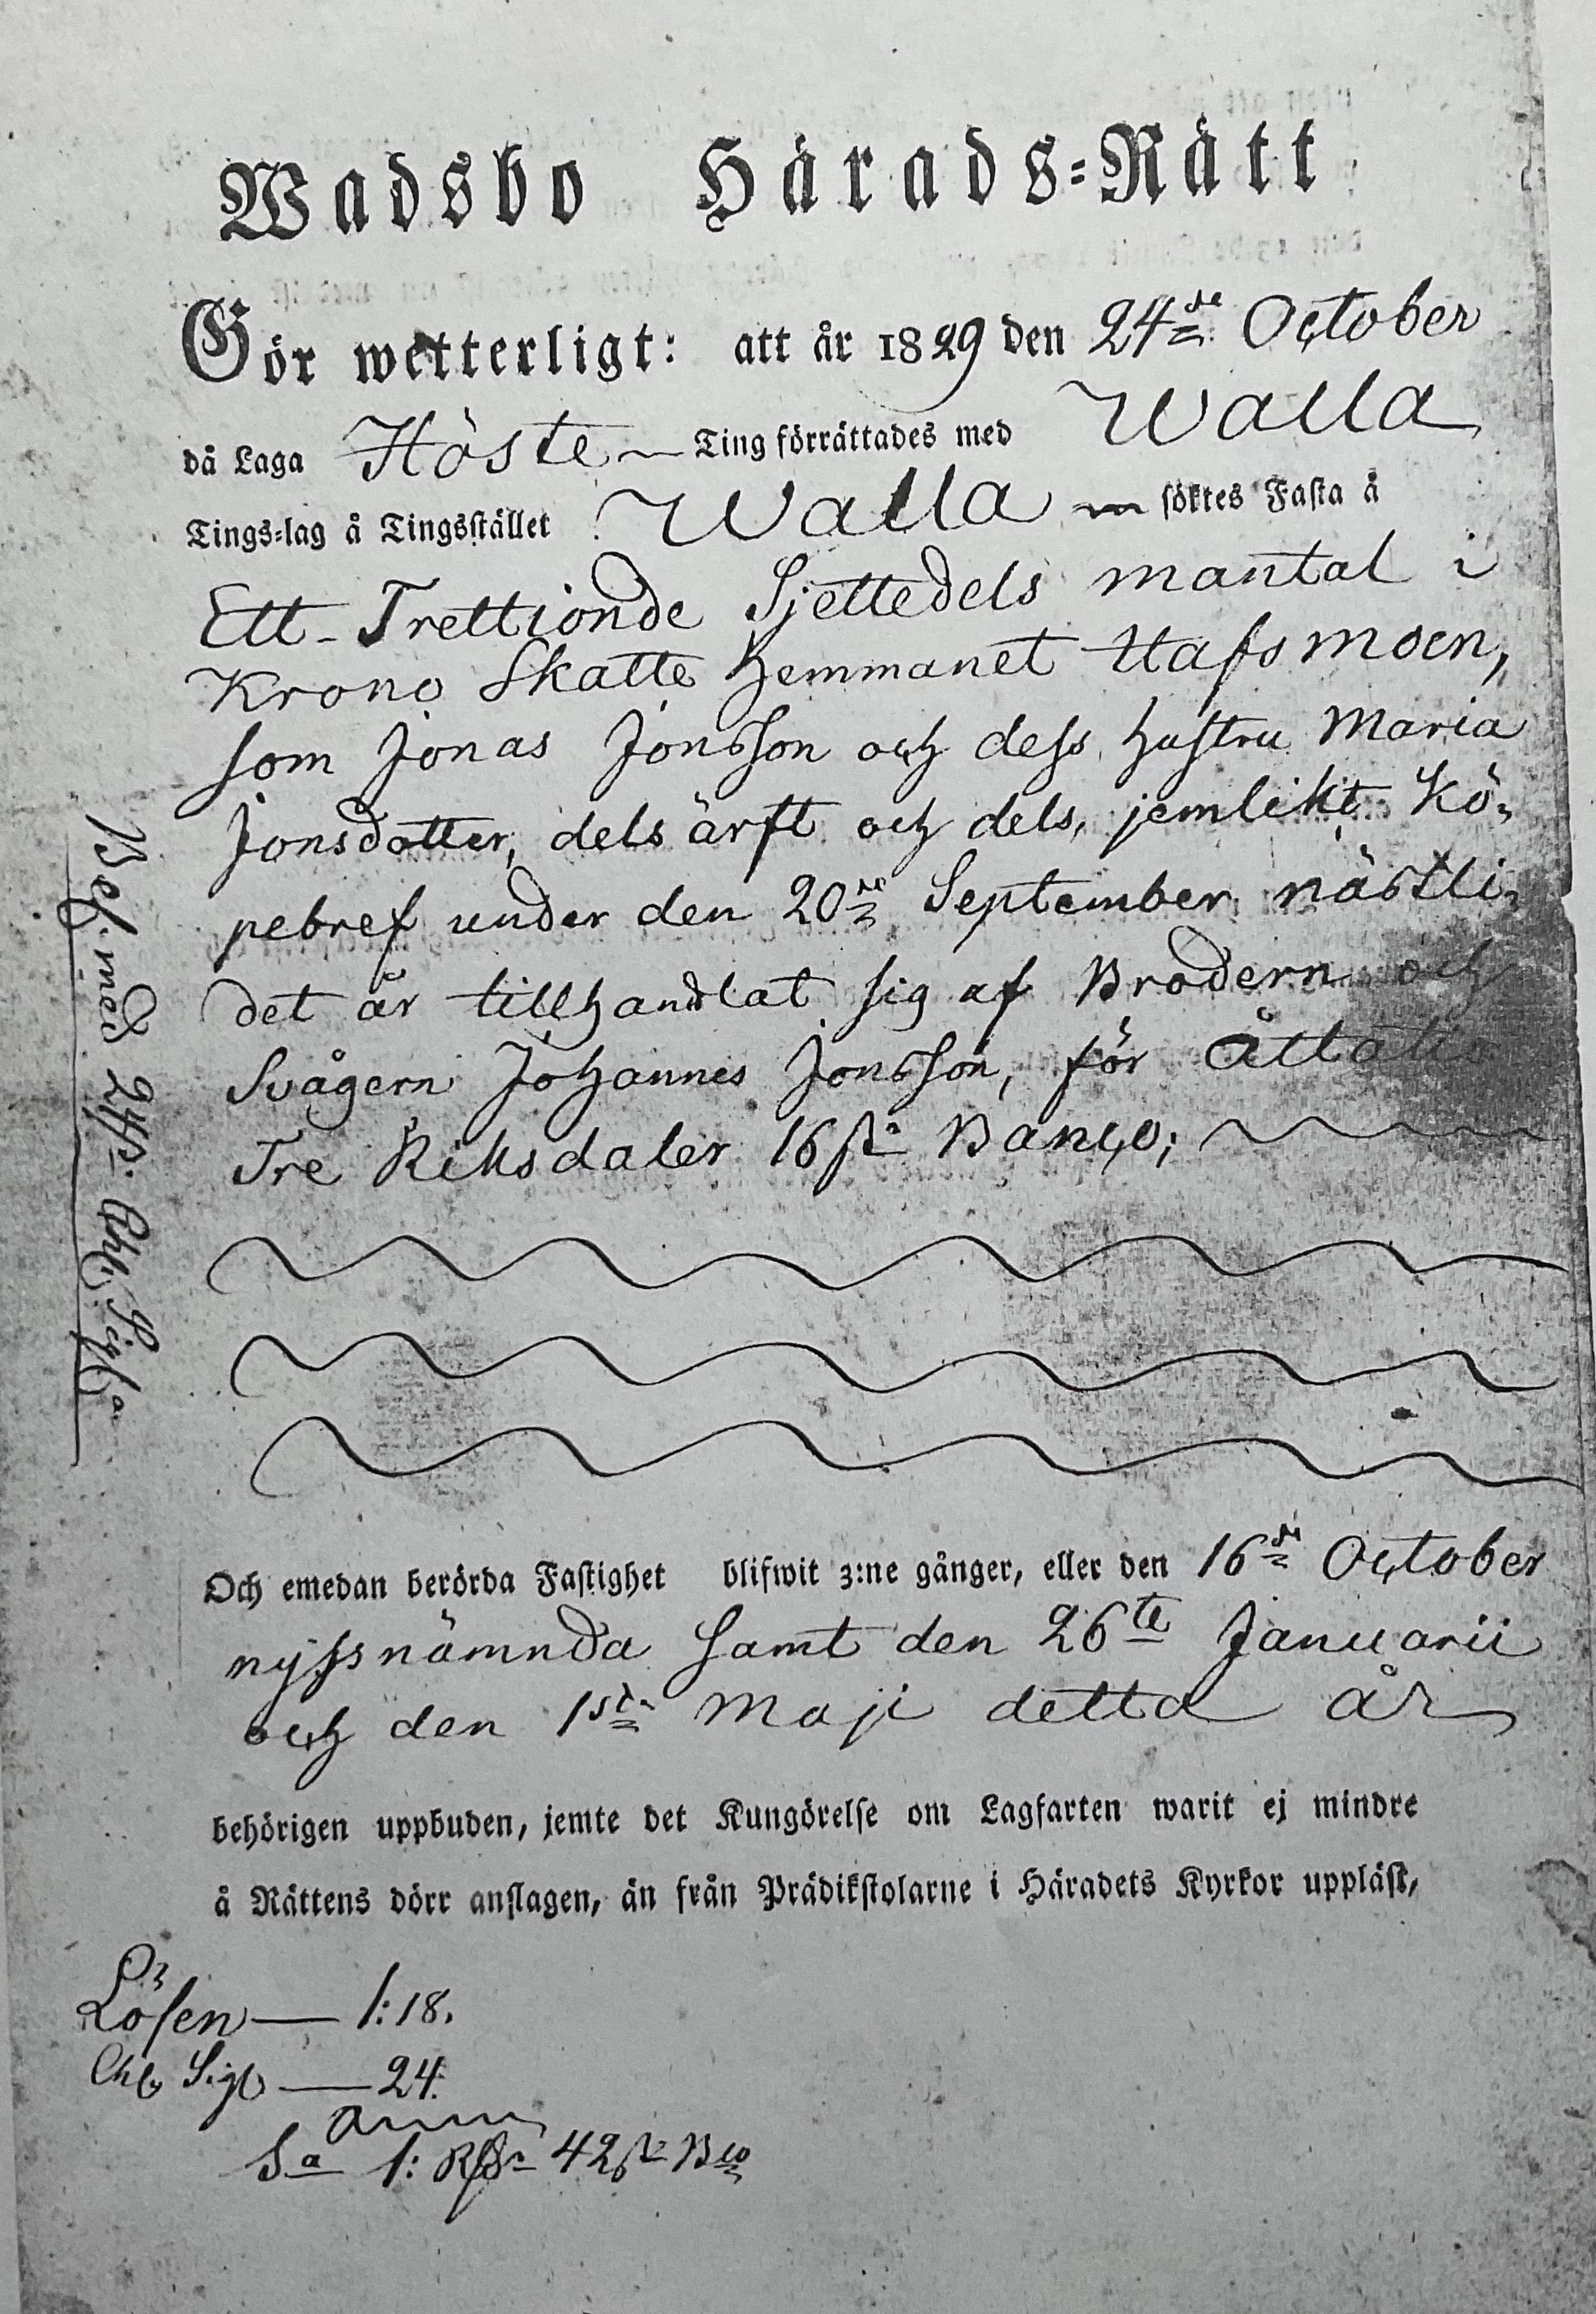 Wadsbo Härads-Rätt
Gör wetterligt: att år 1829 den 24de October
då Laga Höste Ting förrättades med Walla
Tings-lag å Tingsstället Walla söktes Fasta å
Ett Trettionde Sjettedels mantal i
Krono Skatte Hemmanet Hafsmoen,
som Jonas Jonsson och dess hustru Maria
Jonsdotter, dels ärft och dels, jemlikt Kö-
pebref under den 20de September nästli-
det år tillhandlat sig af Brodern och
Svågern Johannes Jonsson, för Åttatio
Tre Riksdaler 16 sk Banco;
Och emedan berörda Fastighet blifwit 3:ne gånger, eller den 16de October
nyssnämnda samt den 26te Januarii
och den 1sta Maji detta år
behörigen uppbuden, jemte det Kungörelse om Lagfarten warit ej mindre
å Rättens dörr anslagen, än från Prädikstolarne i Häradets Kyrkor uppläst,
Bel. med 24 sk. Chl. Sigl a
Lösen — 1:18.
Chl Sigl — 24.
Sa 1: Rdr 42 sk Bco